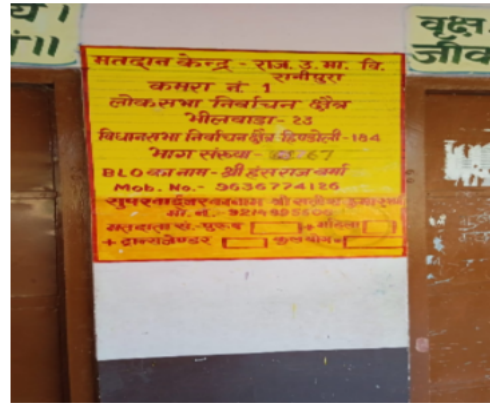 मतदान केन्द्र - राज. उ. मा. वि.
रानीपुरा
कमरा नं. 1
लोकसभा निर्वाचन क्षैत्र
भीलवाडा - 23
विधानसभा निर्वाचन क्षैत्र हिण्डोली - 184
भाग संख्या - 67
BLO का नाम - श्री हंसराज वर्मा
Mob. No. - 9636774126
सुपरवाईजर का नाम श्री सतीश कुमार शर्मा
मो. नं. -
मतदाता सं. - पुरूष + महिला
+ ट्रान्सजेण्डर कुल योग =
वृक्ष